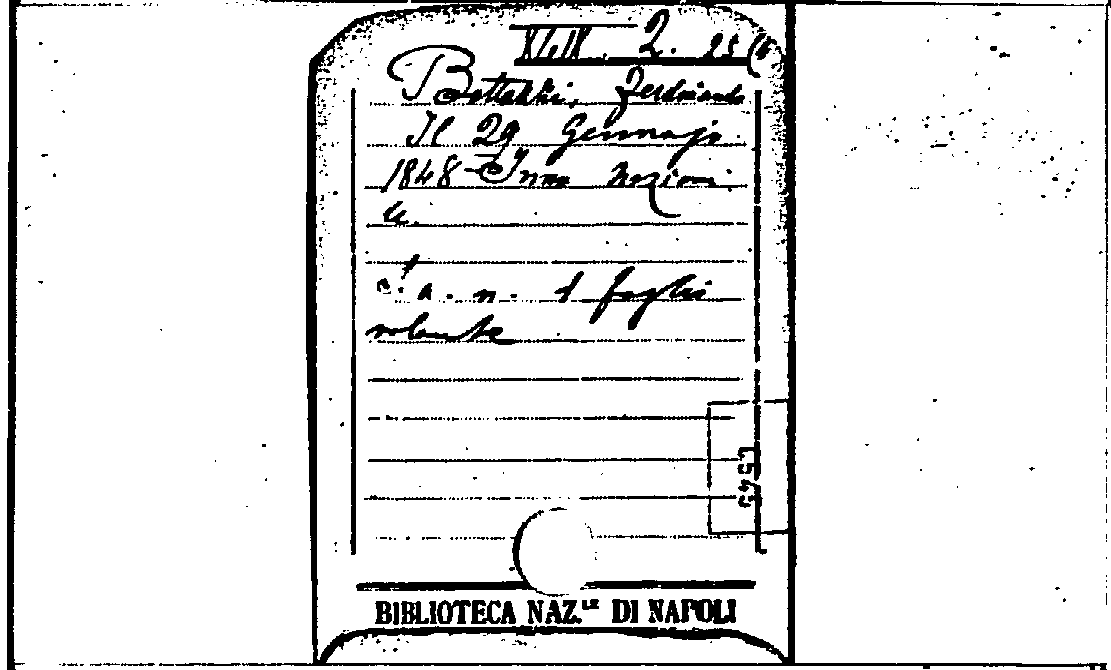 2. 25 (16
Ferdinando
Il 29 Gennajo
1848 Inno Nazion
le.
s. a. n. 1 foglio
volante
1545
BIBLIOTECA NAZ.LE DI NAPOLI